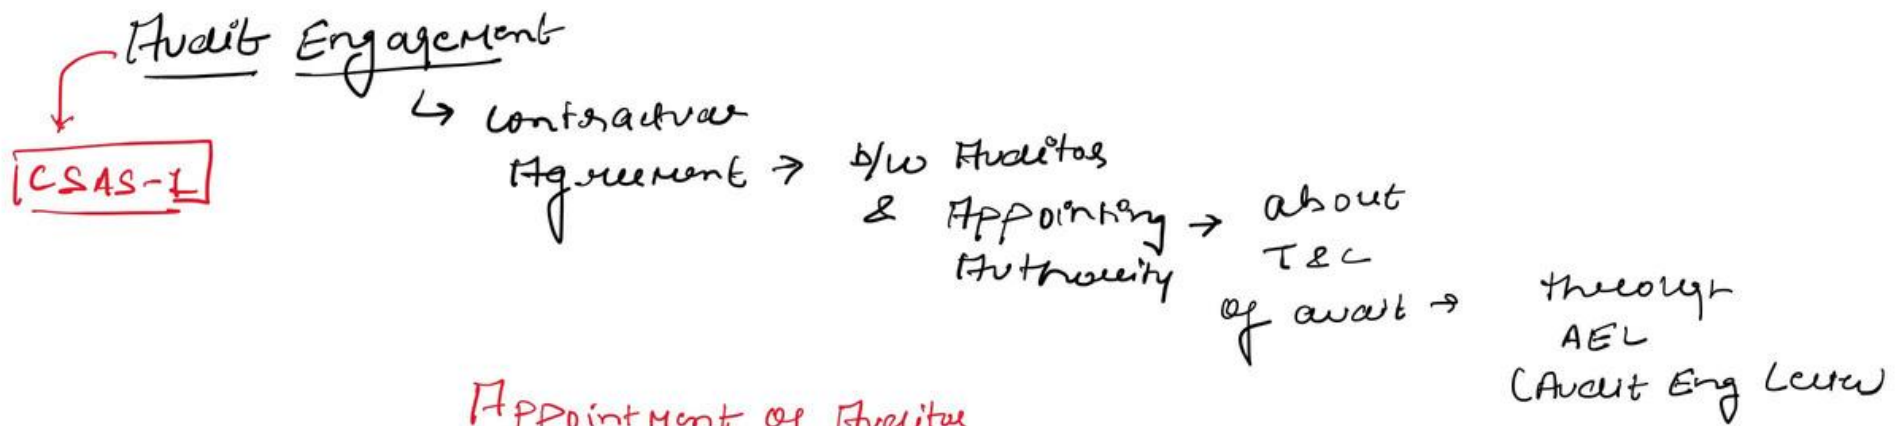 Audit Engagement
CSAS-1
↳ contractual
Agreement → b/w Auditor
& Appointing → about
Authority T&C
of audit → through
AEL
(Audit Eng Letter)
Appointment of Auditor